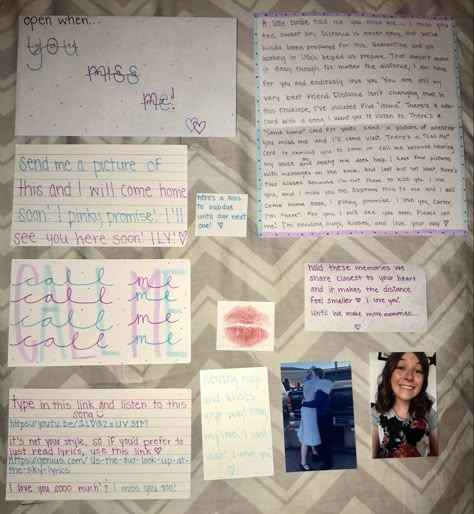 open when...
you
miss
me!
A little birdie told me you miss me... I miss you
too, sweet boy. Distance is never easy, but we've
kinda been prepared for this. Quarantine and you
working in Utah helped us prepare. That doesn't make
it easy though. No matter the distance, I am here
for you and endlessly love you. You are still my
very best friend. Distance isn't changing that. In
this envelope, I've included five "items." There's a
card with a song I want you to listen to. There's a
"come home" card for you to send a picture of whenever
you miss me and I'll come visit. There's a "Call Me"
card to remind you to zoom or call me because hearing
my voice and seeing me does help. I have four pictures
with messages on the back. And last but not least, there's
two kisses because I'm not there to kiss you. I love
you, and I miss you too. Express this to me and I will
come home soon. I pinky promise. I love you, Carter.
I'm here for you. I will see you soon. Please call
me! I'm sending hugs, kisses, and love your way ♡
send me a picture of
this and I will come home
soon! I pinky promise! I'll
see you here soon! ILY! ♡
here's a kiss
to subdue
until our next
one! ♡
CALL ME
call me
call me
call me
call me
hold these memories we
share closest to your heart
and it makes the distance
feel smaller ♡ I love you!
Until we make more memories...
♡
type in this link and listen to this
song
https://youtu.be/
it's not your style, so if you'd prefer to
just read lyrics, use this link ♡
https://genius.com/Us-the-duo-look-up-at-
the-sky-lyrics
I love you sooo much! I miss you too!
sending hugs
and kisses
your way! soon,
my love. I can't
wait! I love you!
♡